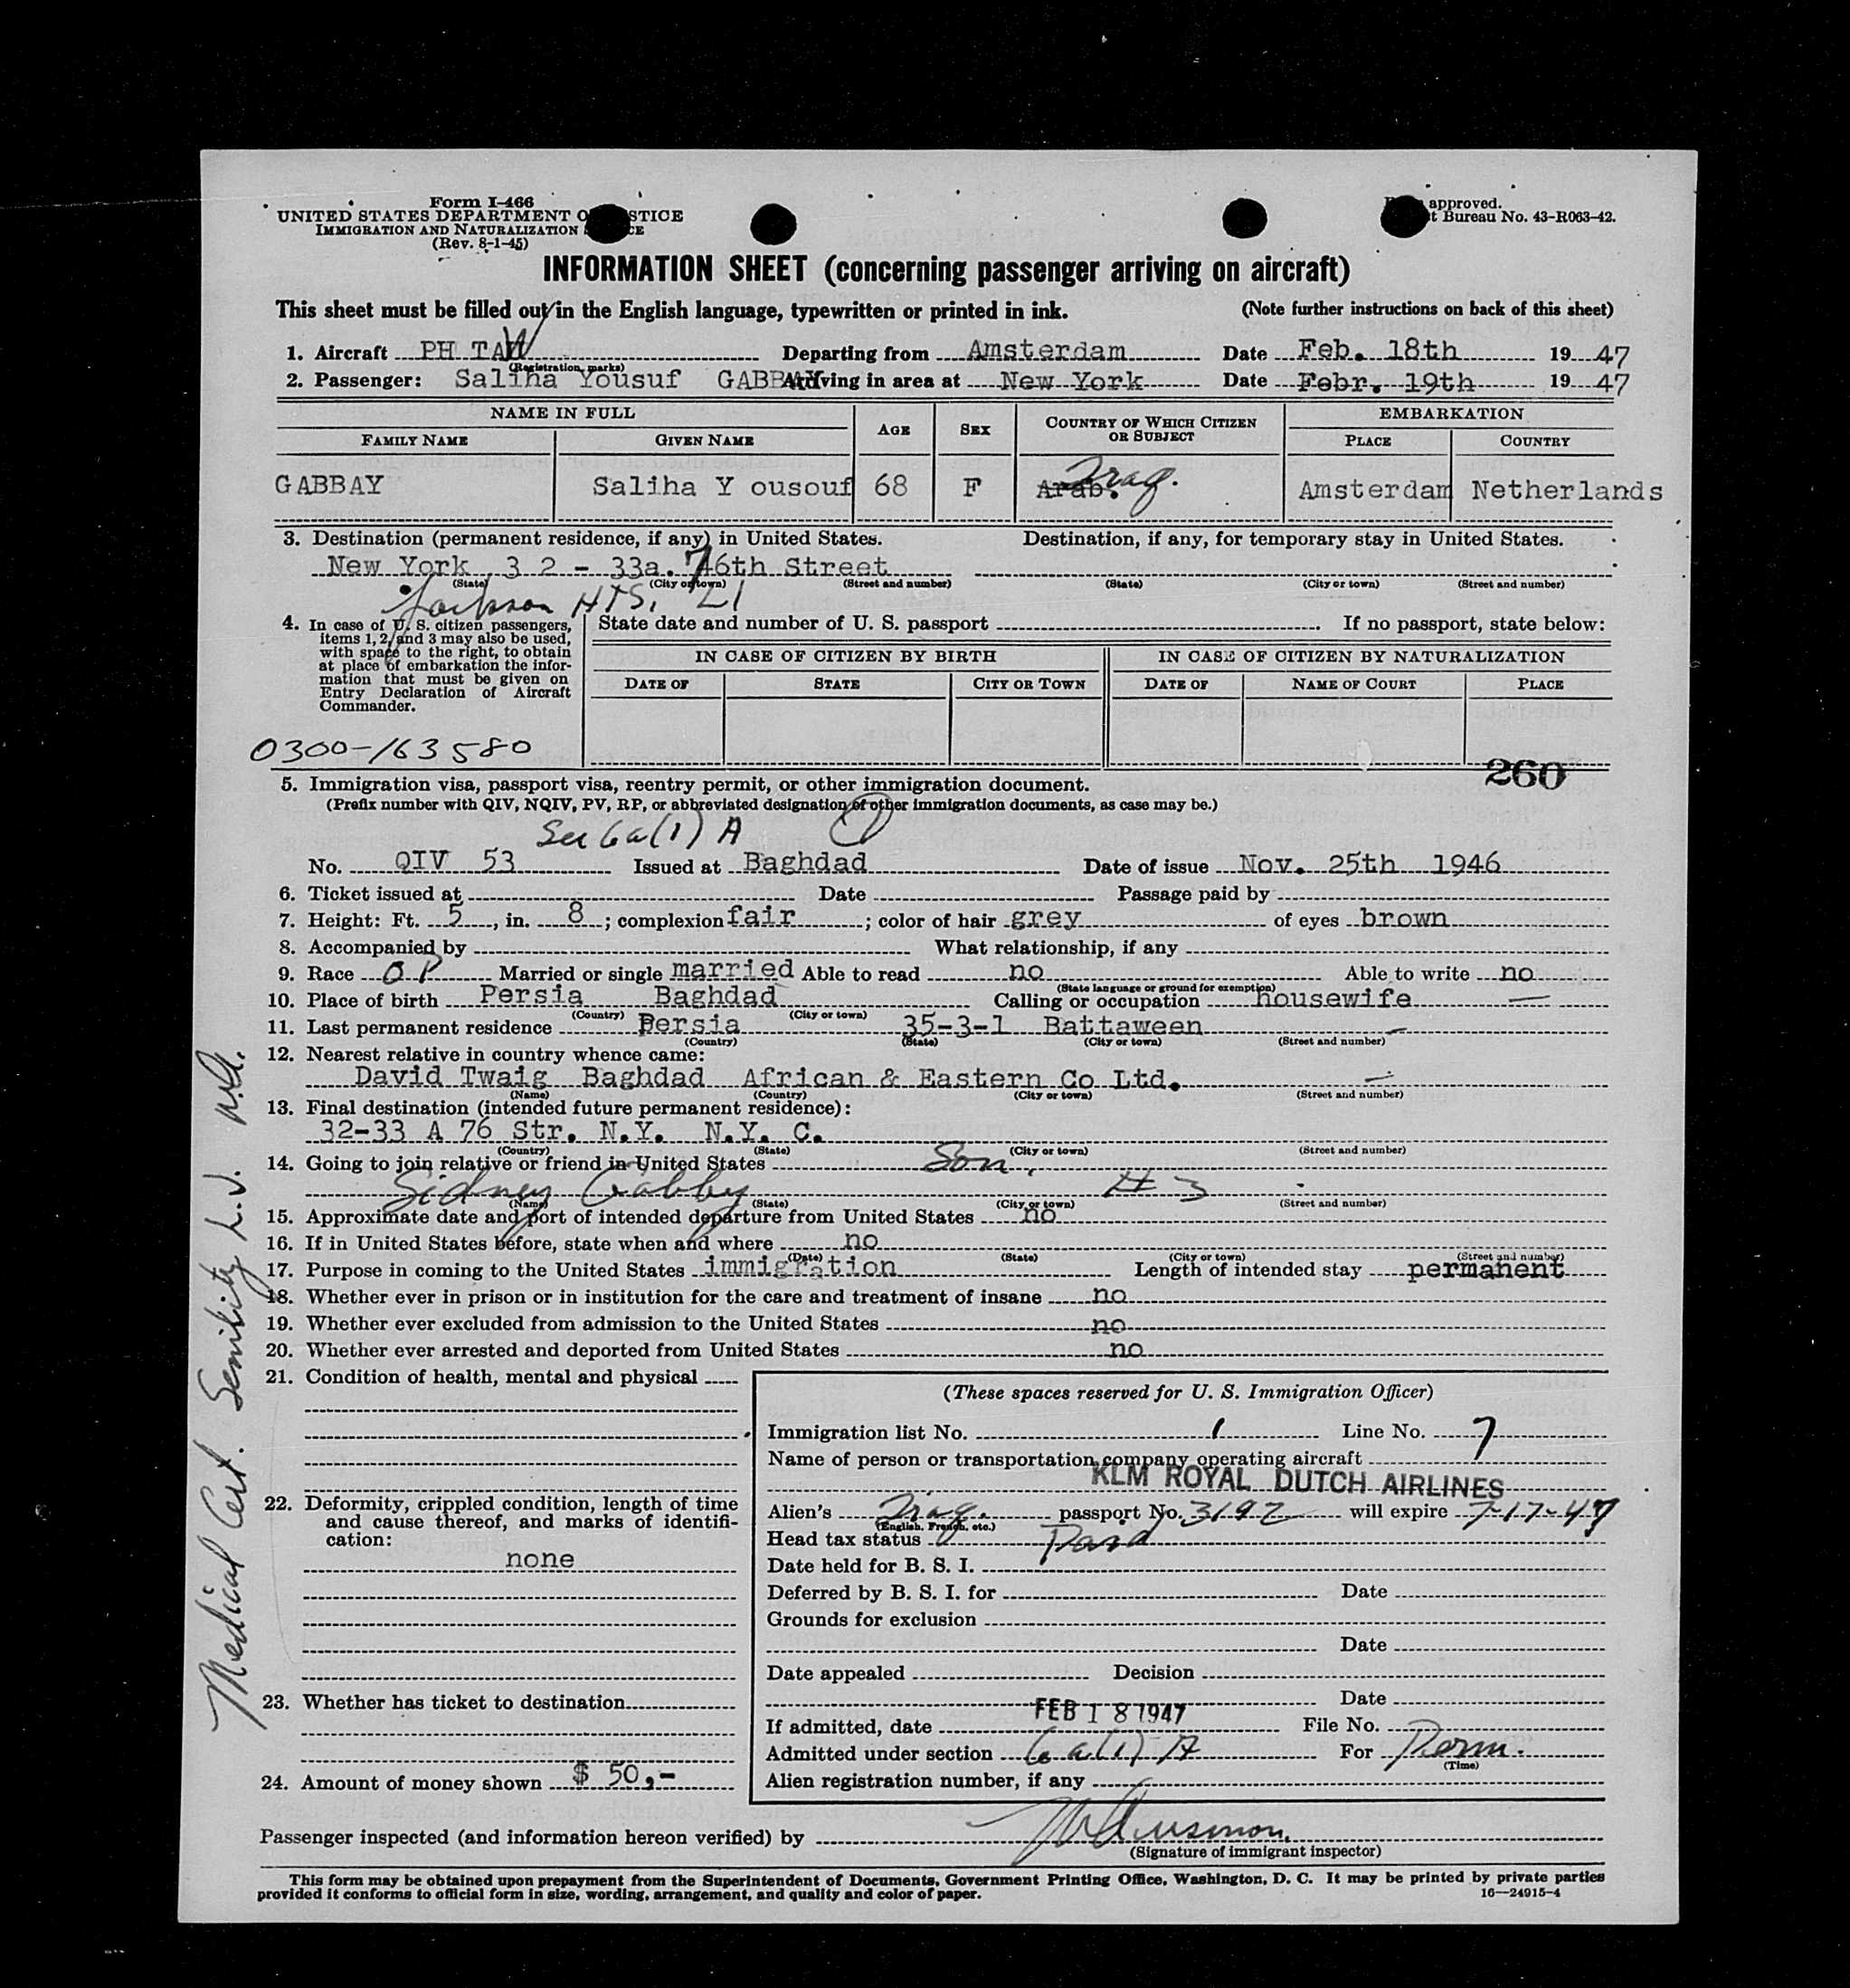 Form I-466
UNITED STATES DEPARTMENT O STICE
IMMIGRATION AND NATURALIZATION CE
(Rev. 8-1-45)
approved.
t Bureau No. 43-R063-42.
INFORMATION SHEET (concerning passenger arriving on aircraft)
This sheet must be filled out in the English language, typewritten or printed in ink. (Note further instructions on back of this sheet)
1. Aircraft PH TAW Departing from Amsterdam Date Feb. 18th 1947
(Registration marks)
2. Passenger: Saliha Yousuf GABBAY Arriving in area at New York Date Febr. 19th 1947
NAME IN FULL AGE SEX COUNTRY OF WHICH CITIZEN OR SUBJECT EMBARKATION
FAMILY NAME GIVEN NAME PLACE COUNTRY
GABBAY Saliha Y ousouf 68 F Arab. Iraq. Amsterdam Netherlands
3. Destination (permanent residence, if any) in United States. Destination, if any, for temporary stay in United States.
New York 3 2 - 33a. 76th Street
(State) (City or town) (Street and number) (State) (City or town) (Street and number)
Jackson HTS, LI
4. In case of U. S. citizen passengers, items 1, 2, and 3 may also be used, with space to the right, to obtain at place of embarkation the information that must be given on Entry Declaration of Aircraft Commander.
State date and number of U. S. passport If no passport, state below:
IN CASE OF CITIZEN BY BIRTH IN CASE OF CITIZEN BY NATURALIZATION
DATE OF STATE CITY OR TOWN DATE OF NAME OF COURT PLACE
0300-163580
260
5. Immigration visa, passport visa, reentry permit, or other immigration document.
(Prefix number with QIV, NQIV, PV, RP, or abbreviated designation of other immigration documents, as case may be.)
Sec 6a(1) A
No. QIV 53 Issued at Baghdad Date of issue Nov. 25th 1946
6. Ticket issued at Date Passage paid by
7. Height: Ft. 5, in. 8; complexion fair; color of hair grey of eyes brown
8. Accompanied by What relationship, if any
9. Race OP Married or single married Able to read no Able to write no
(State language or ground for exemption)
10. Place of birth Persia Baghdad Calling or occupation housewife
(Country) (City or town)
11. Last permanent residence Persia 35-3-1 Battaween
(Country) (State) (City or town) (Street and number)
12. Nearest relative in country whence came:
David Twaig Baghdad African & Eastern Co Ltd.
(Name) (Country) (City or town) (Street and number)
13. Final destination (intended future permanent residence):
32-33 A 76 Str. N.Y. N.Y. C.
(Country) (State) (City or town) (Street and number)
14. Going to join relative or friend in United States Son,
Sidney Gabby # 3
(Name) (State) (City or town) (Street and number)
15. Approximate date and port of intended departure from United States no
16. If in United States before, state when and where no
(Date) (State) (City or town) (Street and number)
17. Purpose in coming to the United States immigration Length of intended stay permanent
18. Whether ever in prison or in institution for the care and treatment of insane no
19. Whether ever excluded from admission to the United States no
20. Whether ever arrested and deported from United States no
21. Condition of health, mental and physical
22. Deformity, crippled condition, length of time and cause thereof, and marks of identification:
none
23. Whether has ticket to destination
24. Amount of money shown $ 50,-
(These spaces reserved for U. S. Immigration Officer)
Immigration list No. 1 Line No. 7
Name of person or transportation company operating aircraft
KLM ROYAL DUTCH AIRLINES
Alien's Iraq. passport No. 3192 will expire 7-17-47
(English, French, etc.)
Head tax status Paid
Date held for B. S. I.
Deferred by B. S. I. for Date
Grounds for exclusion
Date
Date appealed Decision
Date
If admitted, date FEB 18 1947 File No.
Admitted under section 6a(1)-A For Perm.
(Time)
Alien registration number, if any
Passenger inspected (and information hereon verified) by
(Signature of immigrant inspector)
This form may be obtained upon prepayment from the Superintendent of Documents, Government Printing Office, Washington, D. C. It may be printed by private parties
provided it conforms to official form in size, wording, arrangement, and quality and color of paper. 16—24915-4
Medical Cert. Senility